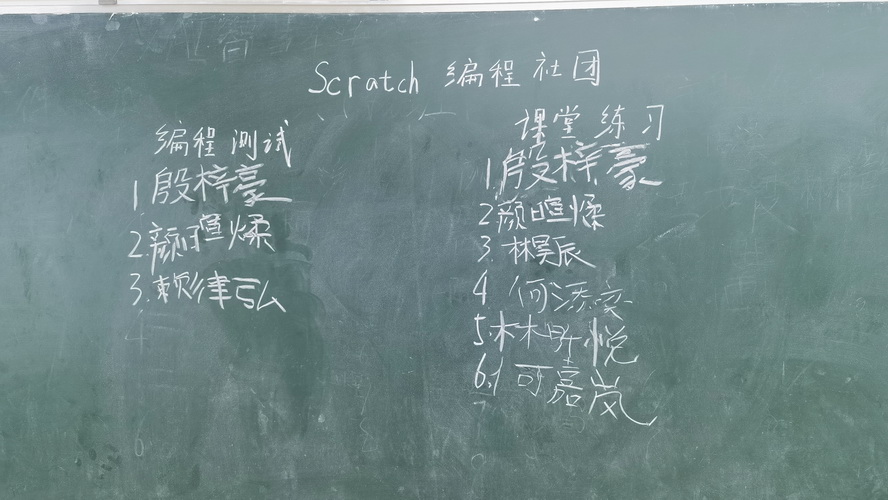 Scratch 编程社团
编程测试
1 殷梓豪
2 颜暄煣
3. 赖律弘
4
6
课堂练习
1. 殷梓豪
2 颜暄煣
3. 林昊辰
4 何添奕
5. 林昕悦
6. 何嘉岚
7